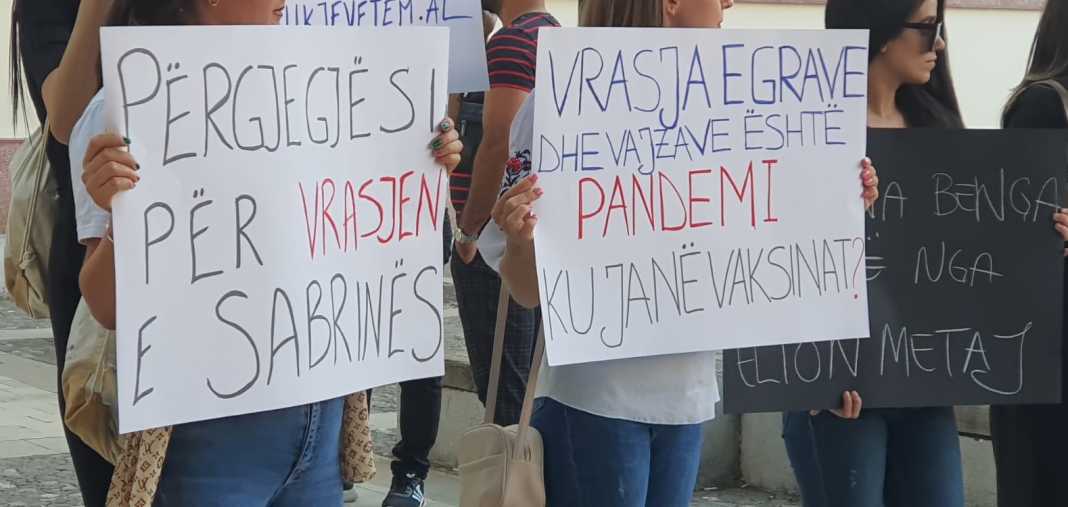 PËRGJEGJËSI
PËR VRASJEN
E SABRINËS
VRASJA E GRAVE
DHE VAJZAVE ËSHTË
PANDEMI
KU JANË VAKSINAT?
BENGA
NGA
ELTON METAJ